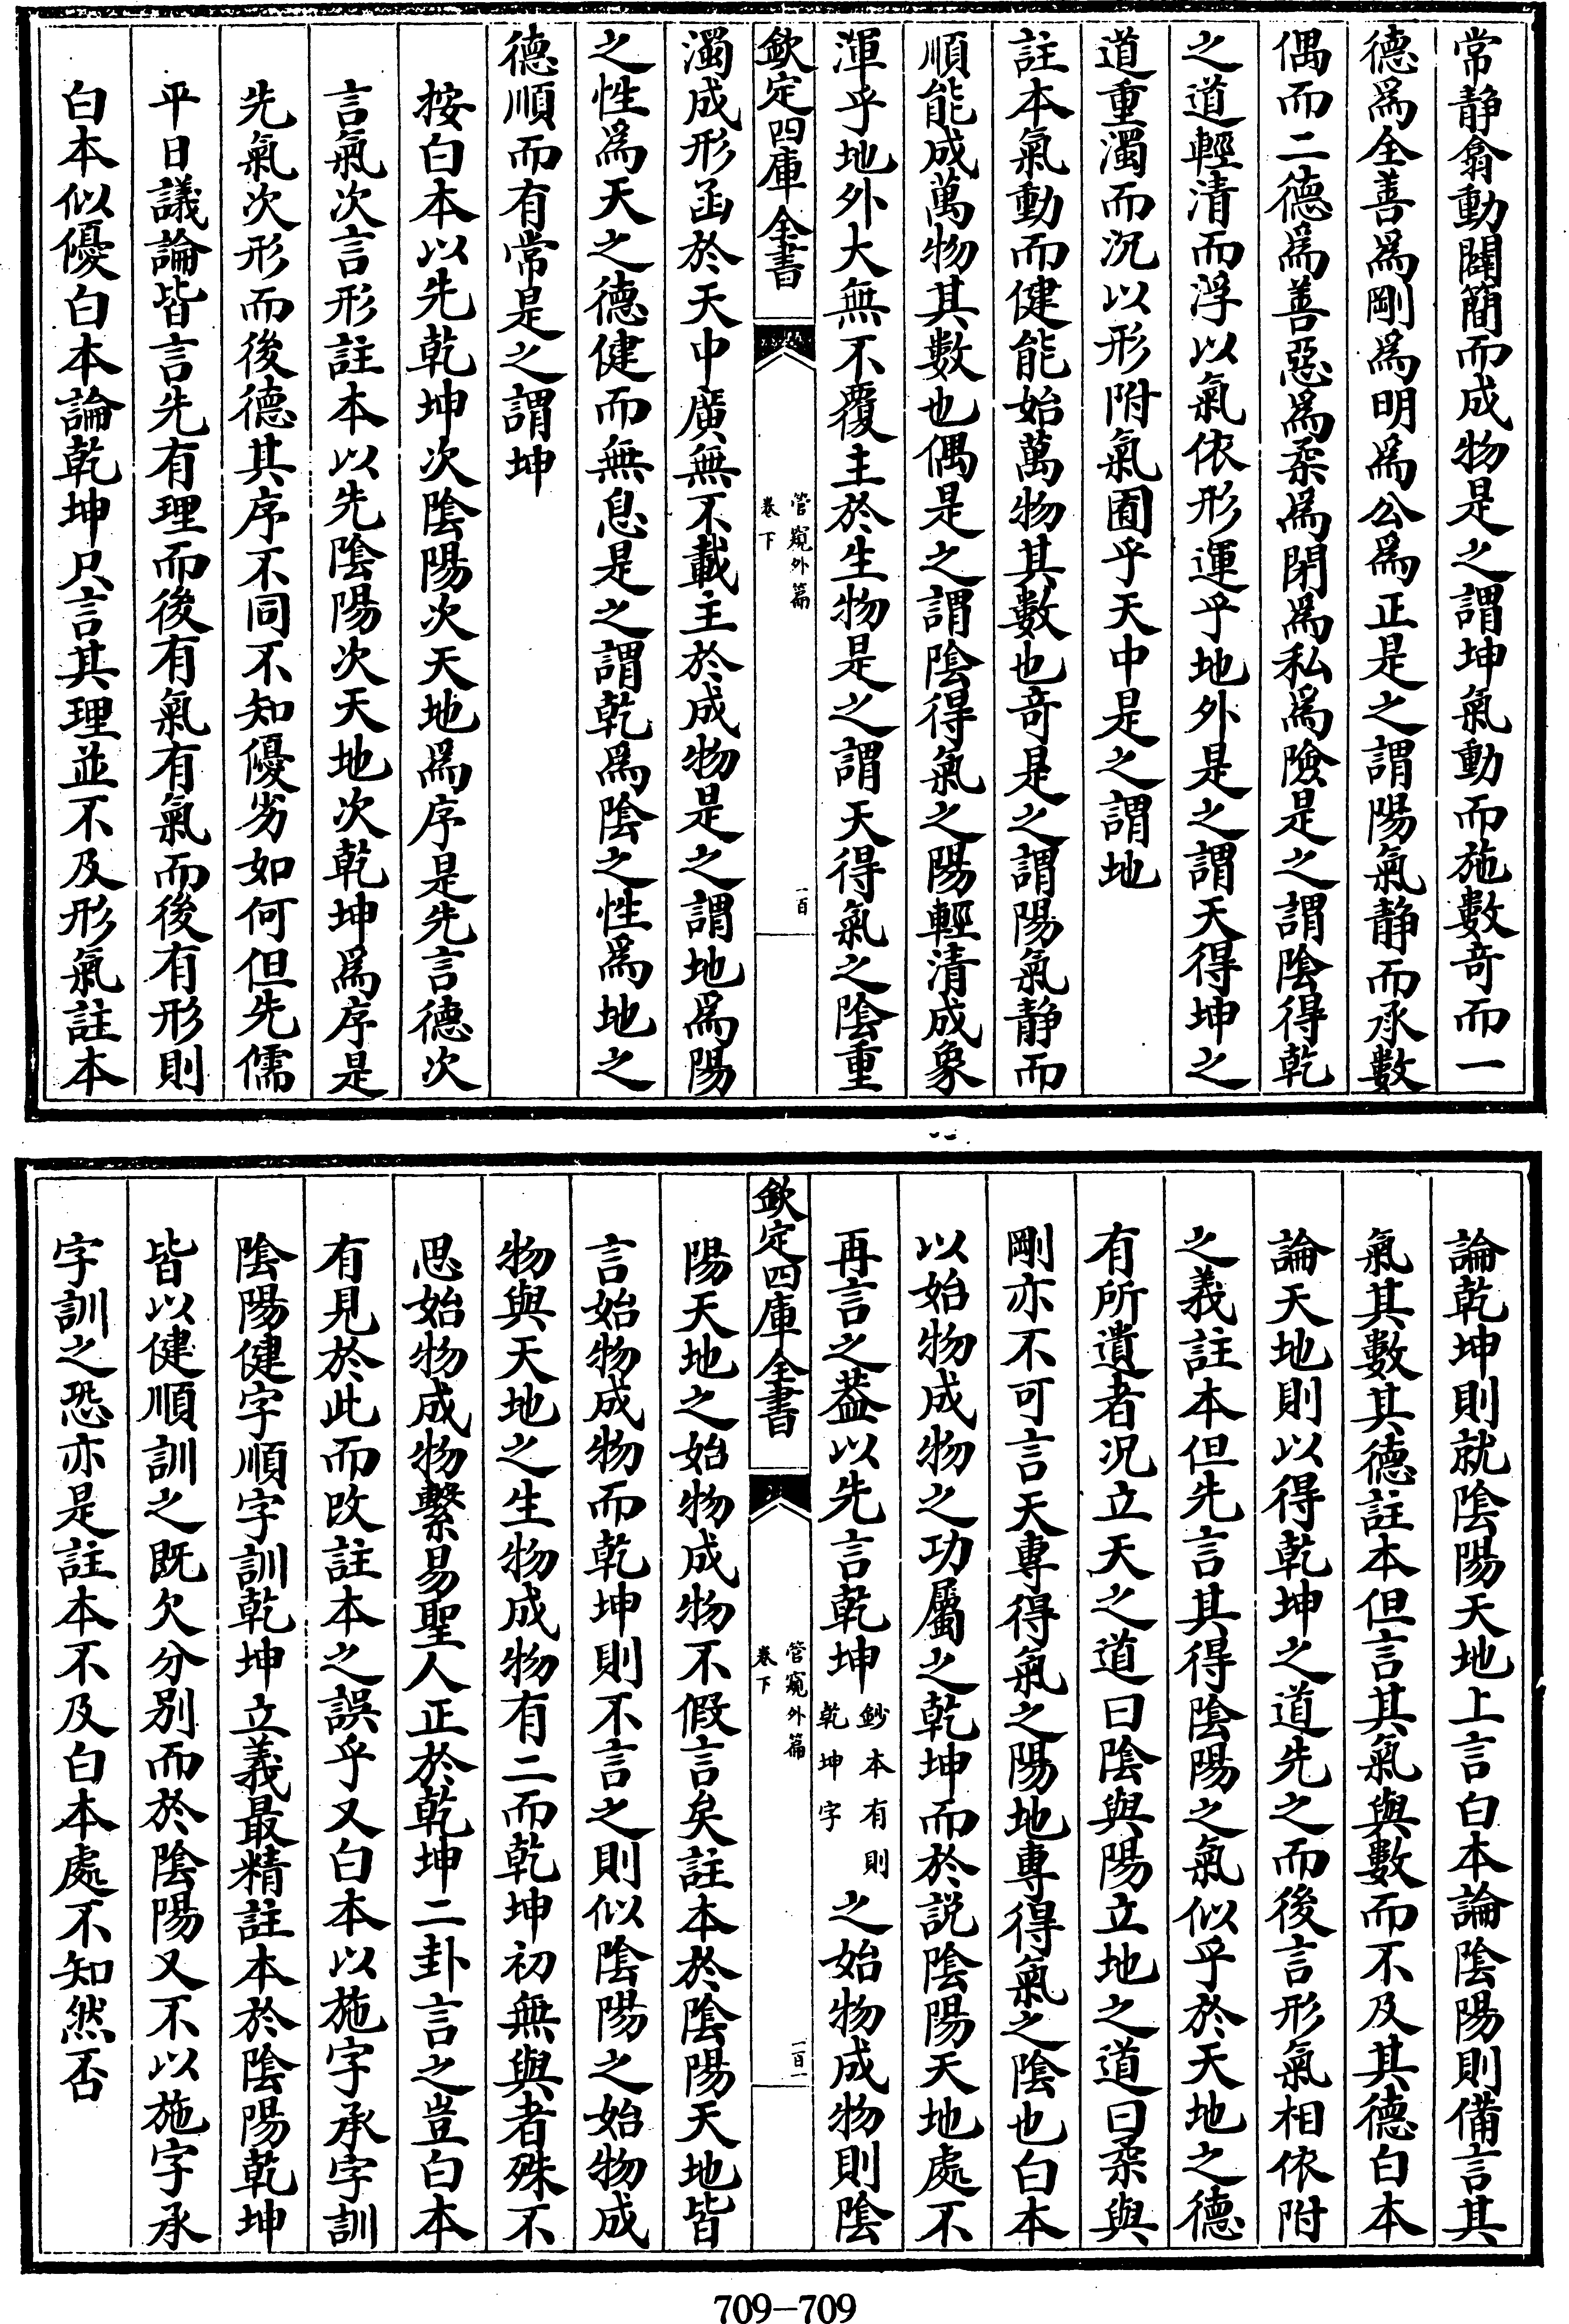 常静翕動闢簡而成物是之謂坤氣動而施數竒而一
德為全善為剛為明為公為正是之謂陽氣静而承數
偶而二德為善惡為柔為閉為私為險是之謂陰得乾
之道輕清而浮以氣依形運乎地外是之謂天得坤之
道重濁而沉以形附氣囿乎天中是之謂地
註本氣動而健能始萬物其數也竒是之謂陽氣静而
順能成萬物其數也偶是之謂陰得氣之陽輕清成象
渾乎地外大無不覆主於生物是之謂天得氣之陰重
欽定四庫全書
管窺外篇
卷下
一百
濁成形函於天中廣無不載主於成物是之謂地為陽
之性為天之德健而無息是之謂乾為陰之性為地之
德順而有常是之謂坤
按白本以先乾坤次陰陽次天地為序是先言德次
言氣次言形註本以先陰陽次天地次乾坤為序是
先氣次形而後德其序不同不知優劣如何但先儒
平日議論皆言先有理而後有氣有氣而後有形則
白本似優白本論乾坤只言其理並不及形氣註本
論乾坤則就陰陽天地上言白本論陰陽則備言其
氣其數其德註本但言其氣與數而不及其德白本
論天地則以得乾坤之道先之而後言形氣相依附
之義註本但先言其得陰陽之氣似乎於天地之德
有所遺者况立天之道曰陰與陽立地之道曰柔與
剛亦不可言天專得氣之陽地專得氣之陰也白本
以始物成物之功屬之乾坤而於説陰陽天地處不
再言之葢以先言乾坤鈔本有則乾坤字之始物成物則陰
欽定四庫全書
管窺外篇
卷下
一百一
陽天地之始物成物不假言矣註本於陰陽天地皆
言始物成物而乾坤則不言之則似陰陽之始物成
物與天地之生物成物有二而乾坤初無與者殊不
思始物成物繫易聖人正於乾坤二卦言之豈白本
有見於此而改註本之誤乎又白本以施字承字訓
陰陽健字順字訓乾坤立義最精註本於陰陽乾坤
皆以健順訓之既欠分别而於陰陽又不以施字承
字訓之恐亦是註本不及白本處不知然否
709-709